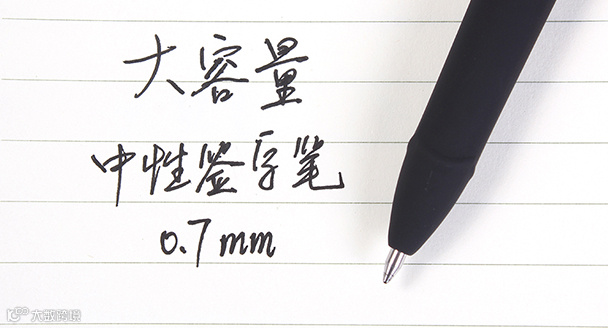 大容量
中性签字笔
0.7mm